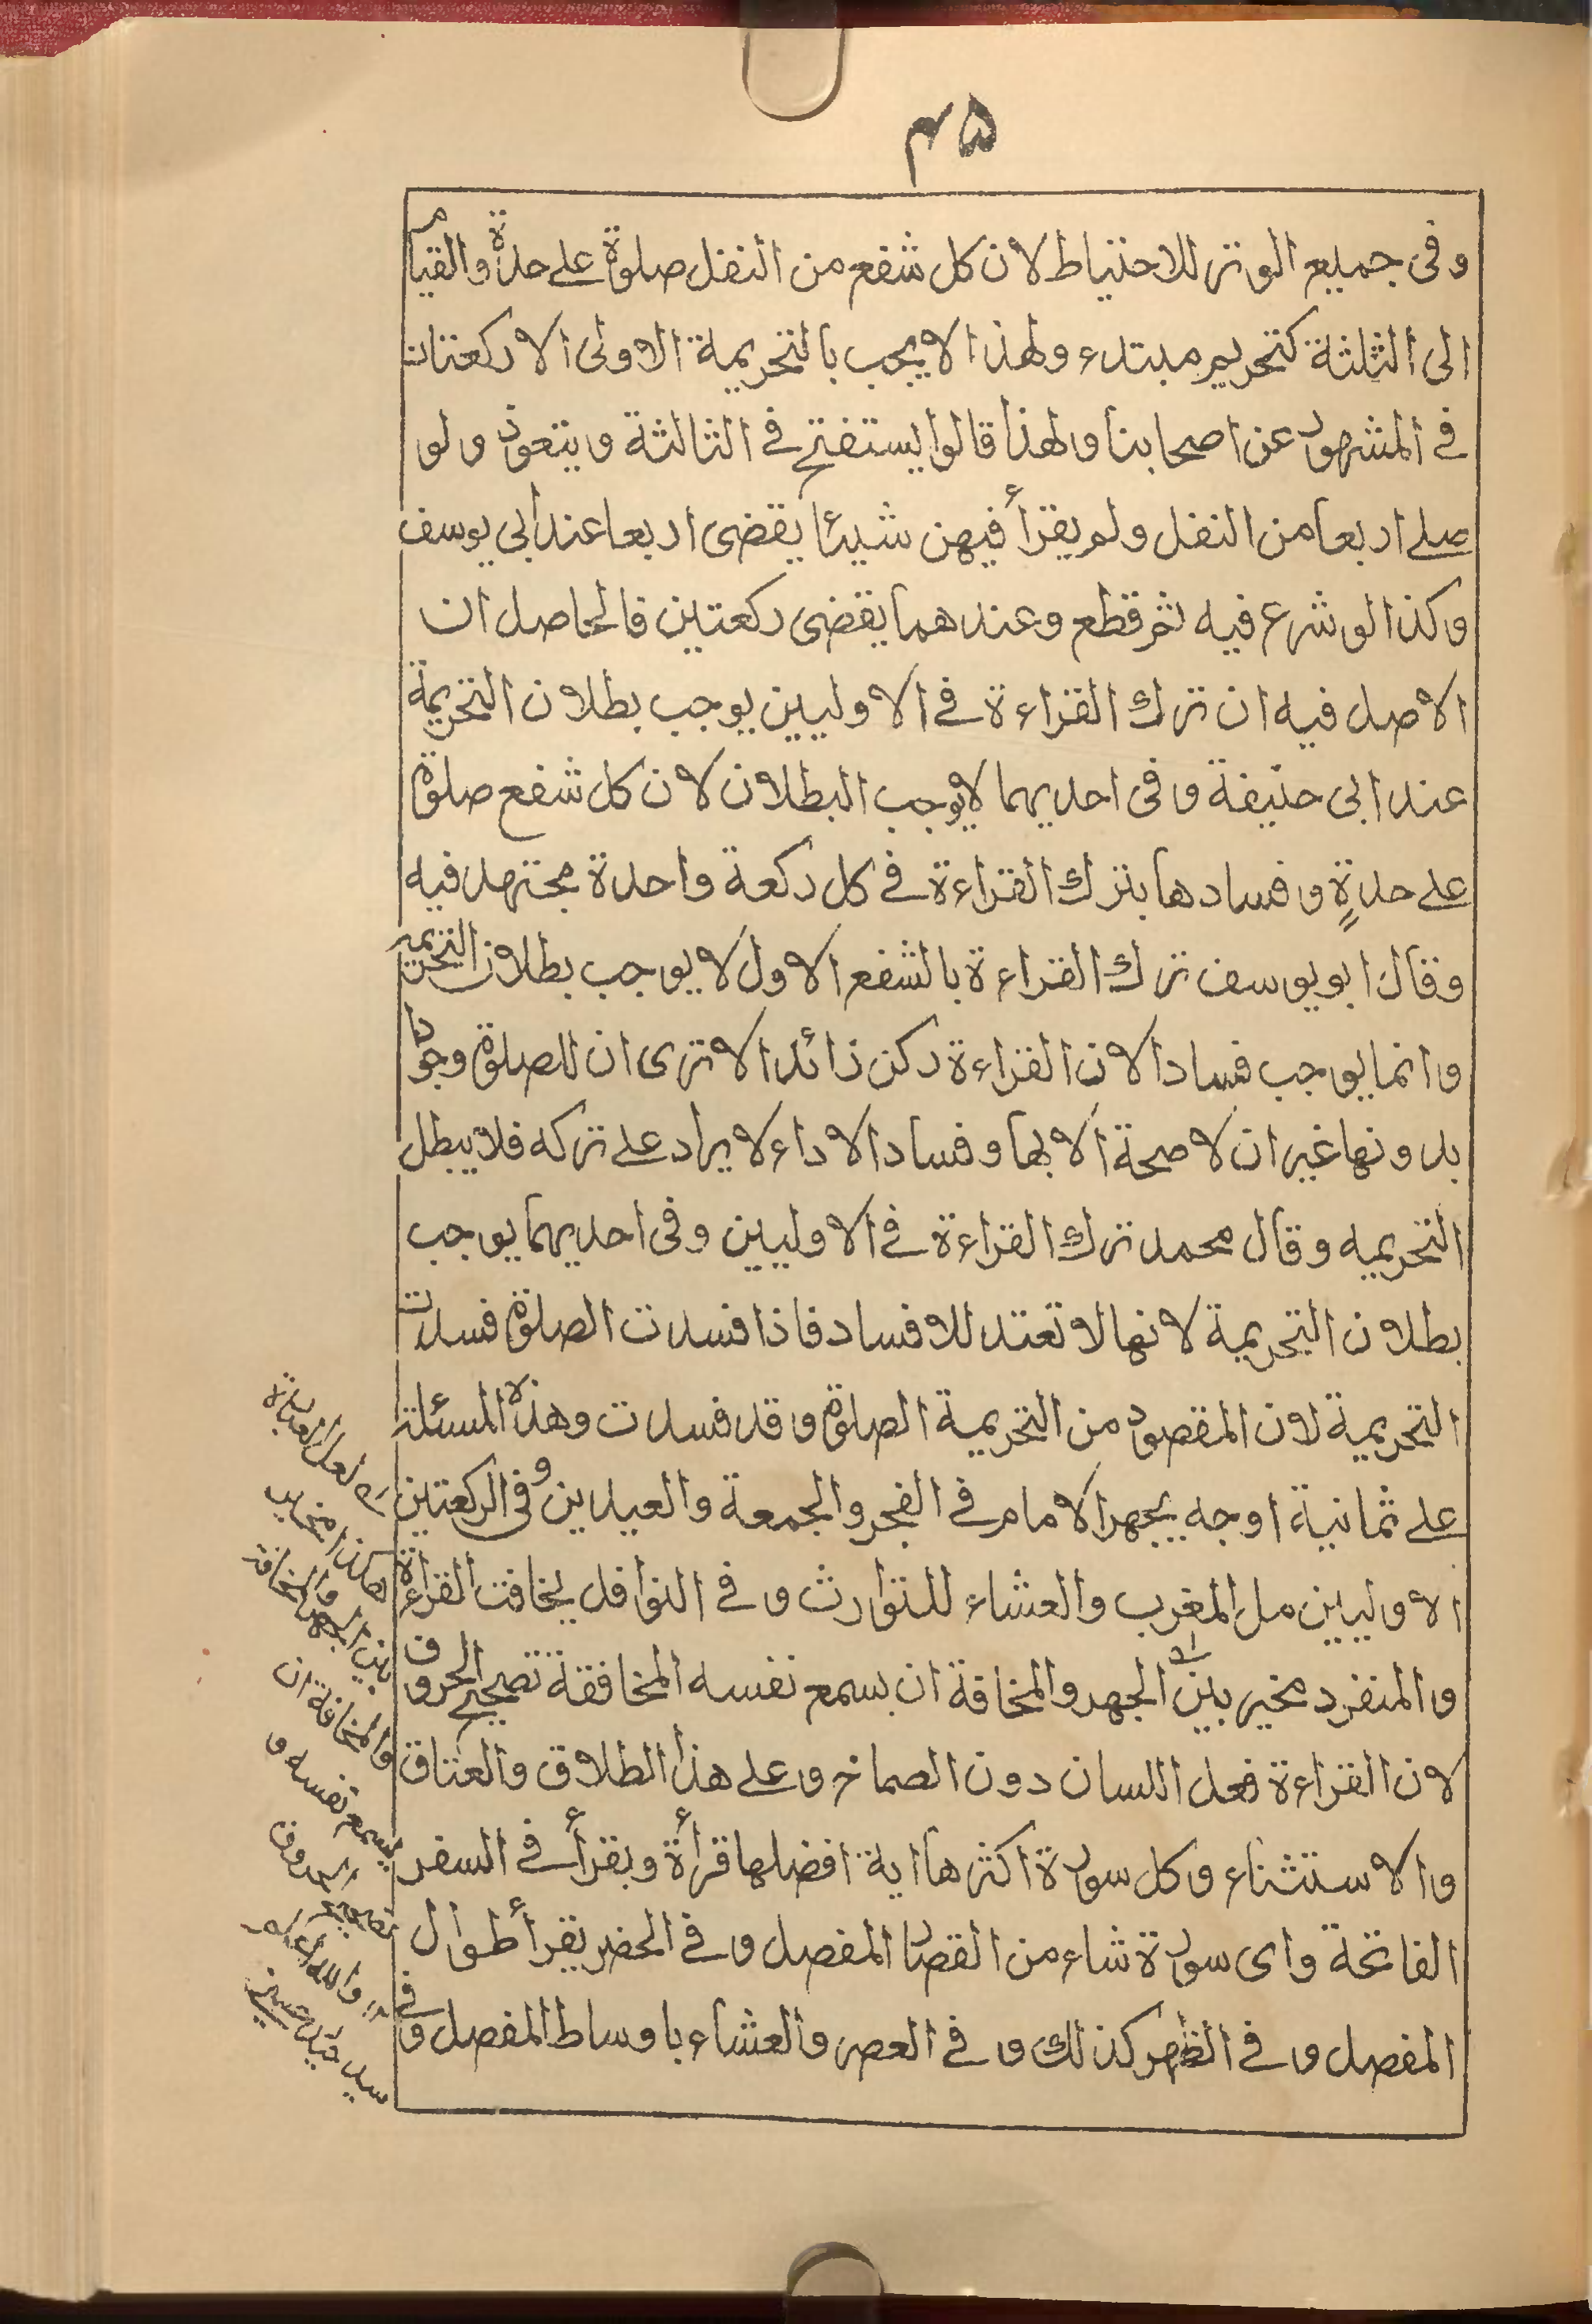 ۴۵
وفى جميع الوتر للاحتياط لان كل شفع من النفل صلوة على حدة والقيام
الى الثلثة كتحريم مبتدء ولهذا لا يجب بالتحريمة الاولى الا ركعتان
فى المشهور عن اصحابنا ولهذا قالوا يستفتح فى الثالثة ويتعوذ ولو
صلى اربعا من النفل ولم يقرأ فيهن شيئا يقضى اربعا عند ابى يوسف
وكذا لو شرع فيه ثم قطع وعندهما يقضى ركعتين فالحاصل ان
الاصل فيه ان ترك القراءة فى الاوليين يوجب بطلان التحريمة
عند ابى حنيفة وفى احديهما لا يوجب البطلان لان كل شفع صلوة
على حدةٍ وفسادها بترك القراءة فى كل ركعة واحدة مجتهد فيه
وقال ابو يوسف ترك القراءة بالشفع الاول لا يوجب بطلان التحريمة
وانما يوجب فسادا لان القراءة ركن زائد الا ترى ان للصلوة وجودا
بدونها غير ان لا صحة الا بها وفساد الاداء لا يراد على تركه فلا يبطل
التحريمه وقال محمد ترك القراءة فى الاوليين وفى احديهما يوجب
بطلان التحريمة لانها لا تعتد للافساد فاذا فسدت الصلوة فسدت
التحريمة لان المقصود من التحريمة الصلوة وقد فسدت وهذه المسئلة
على ثمانية اوجه يجهر الامام فى الفجر والجمعة والعيدين وفى الركعتين
الاوليين مل المغرب والعشاء للتوارث وفى النوافل يخافت القراءة
والمنفرد مخير بين الجهر والمخافة ان يسمع نفسه المخافقة تصحيح الحروف
لان القراءة فعل اللسان دون الصماخ وعلى هذا الطلاق والعتاق
والاستثناء وكل سورة اكثرها اية افضلها قرأة ويقرأ فى السفر
الفاتحة واى سورة شاء من القصار المفصل وفى الحضر يقرأ طوال
المفصل وفى الظهر كذلك وفى العصر والعشاء باوساط المفصل وفى
لعل العبارة
هكذا مخير
بين الجهر والمخافة
والمخافة ان
يسمع نفسه و
تصحيح الحروف
١٢ والله اعلم
سيد